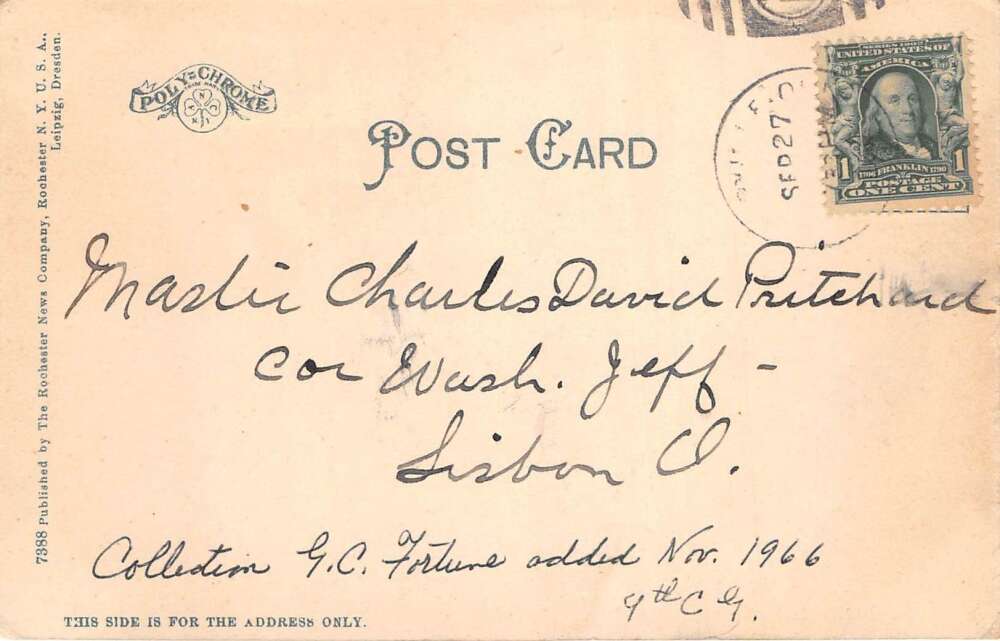 7388 Published by The Rochester News Company, Rochester N. Y. U. S. A.,
Leipzig, Dresden.
POLY-CHROME
POST CARD
SEP 27
SERIES 1902
UNITED STATES OF
AMERICA
1 1706 FRANKLIN 1790 1
POSTAGE
ONE CENT
Master Charles David Pritchard
Cor Wash. Jeff -
Lisbon O.
Collection G.C. Fortune added Nov. 1966
THIS SIDE IS FOR THE ADDRESS ONLY.